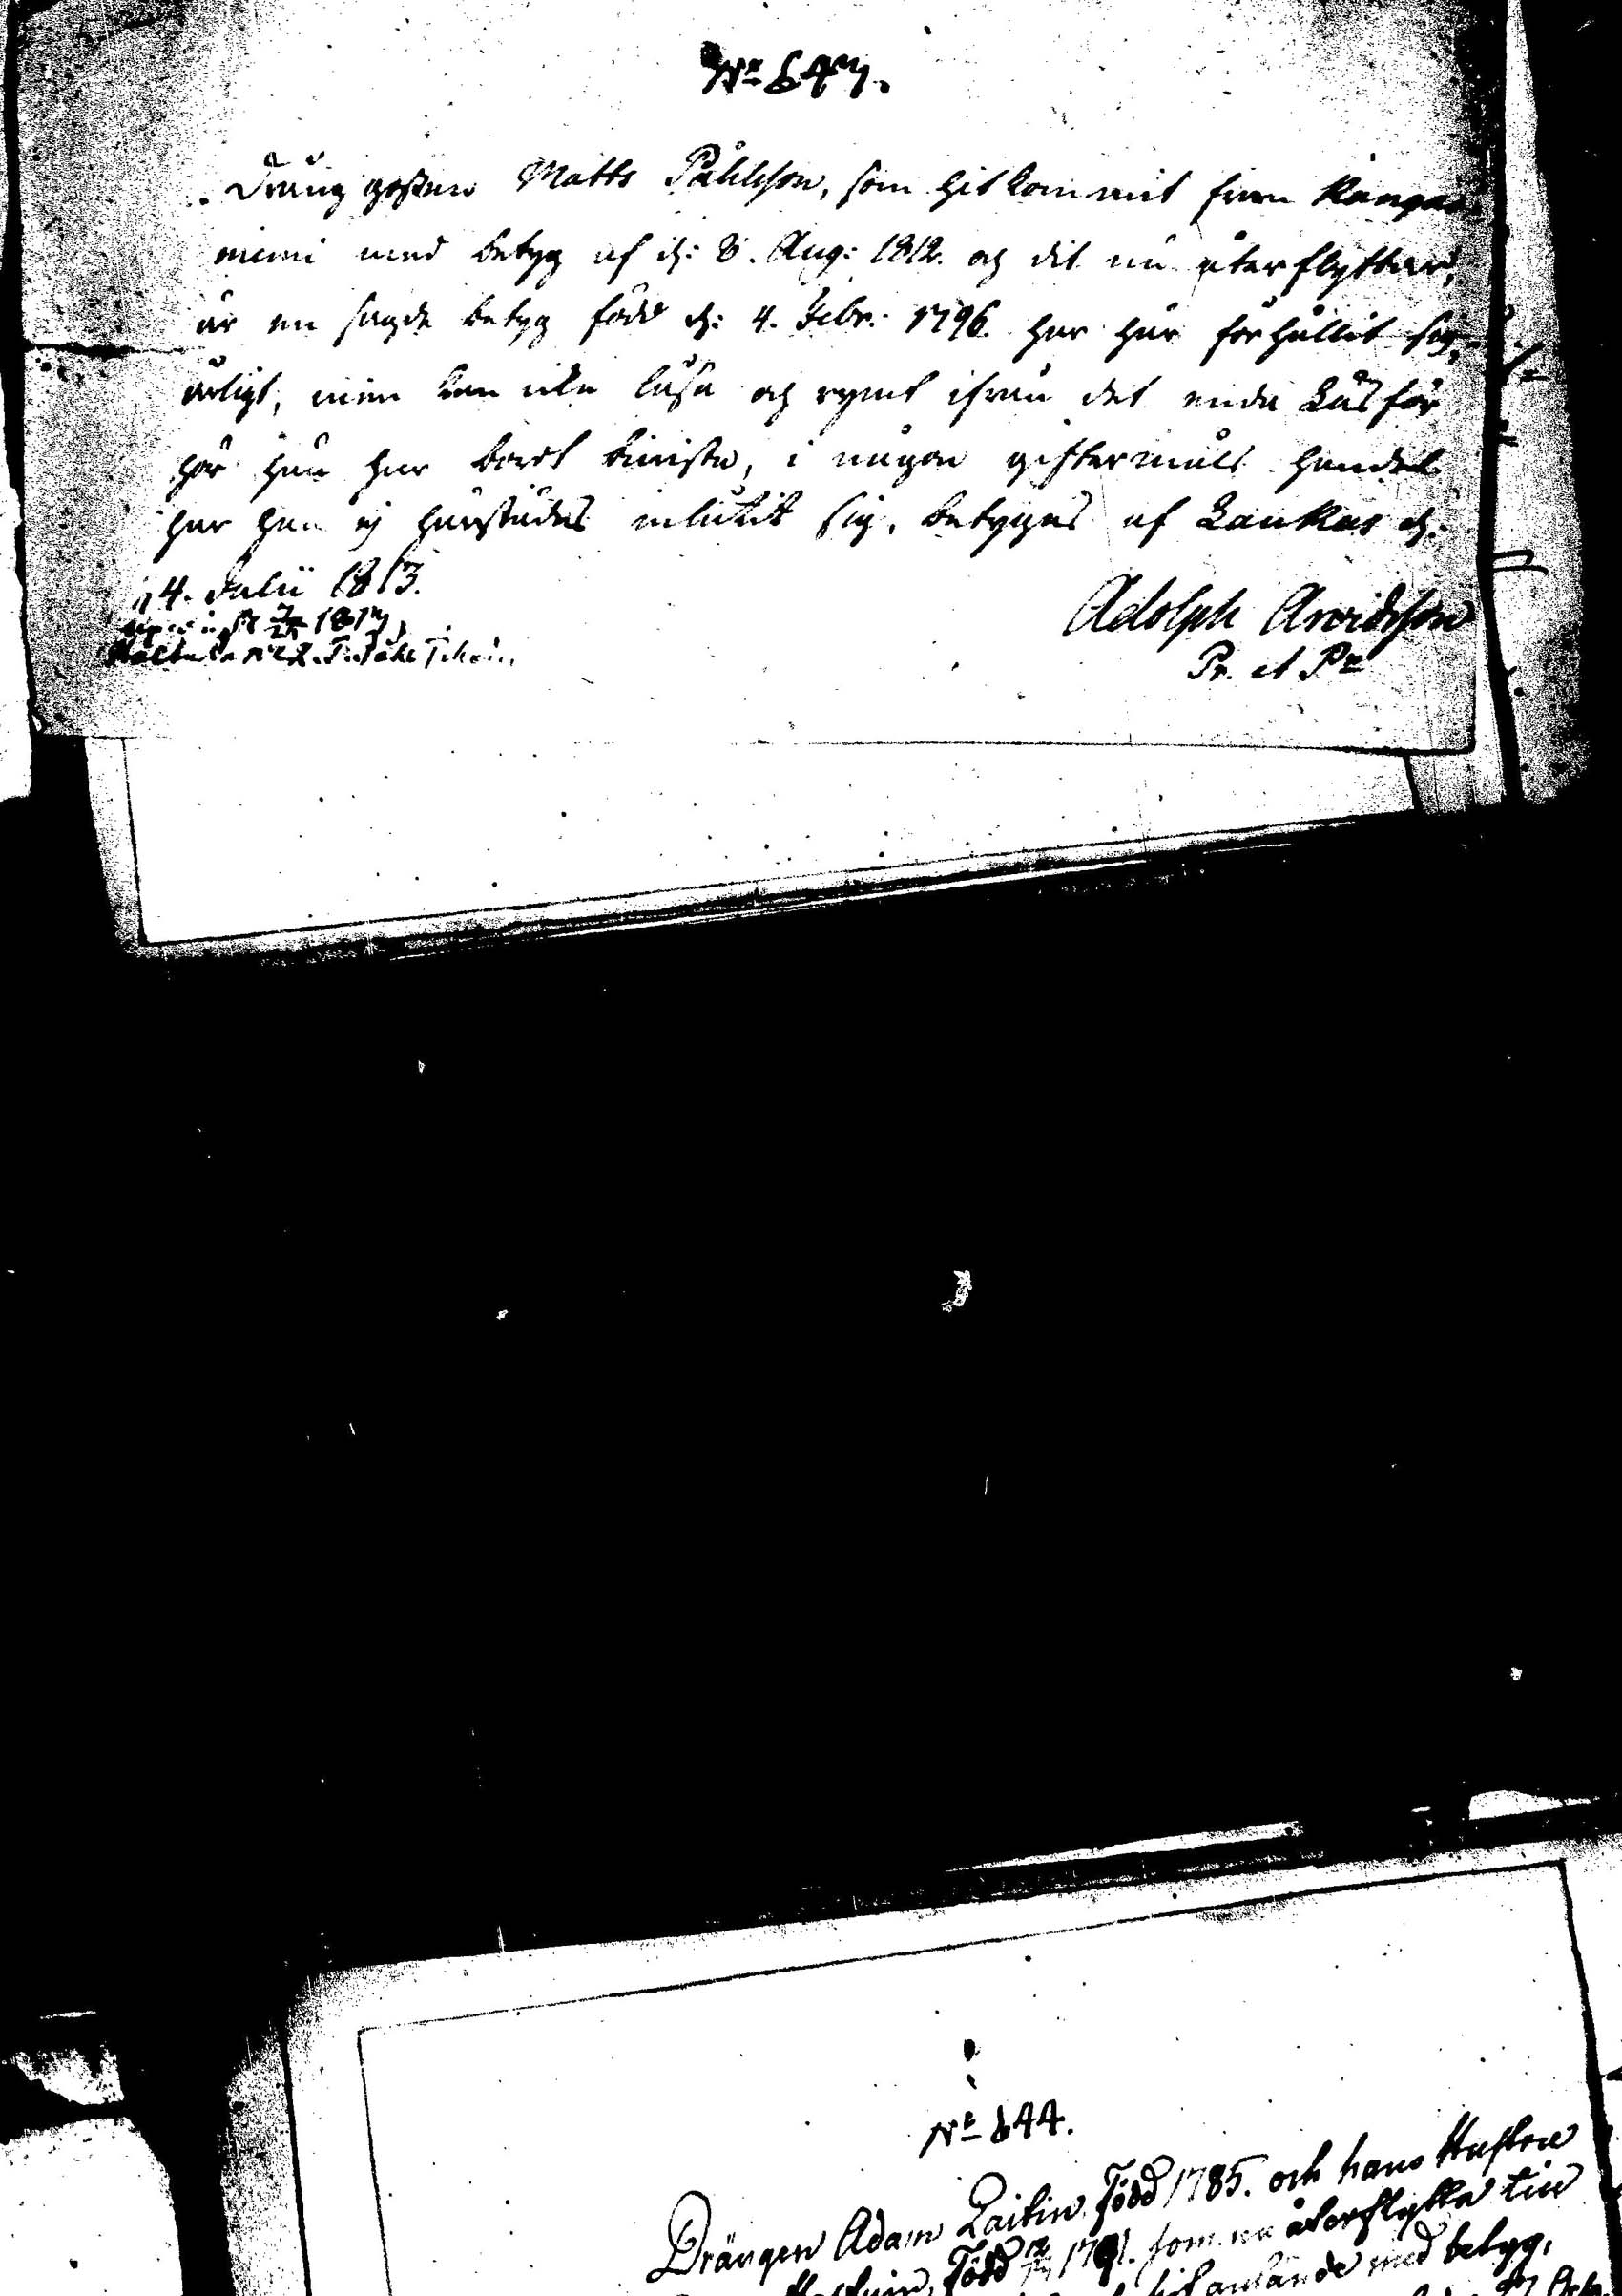 No 647.
Dräng gossen Matts Påhlsson, som hit kommit från Kangas
niemi med betyg af d: 8. Aug: 1812. och dit nu återflyttar,
är en sagde betyg född d: 4. Febr: 1796. har här förhållit sig
ärligt, men kan icke läsa och rymt ifrån det enda Läsför
hör han har bort bevista, i någon giftermåls handel
har han ej härstädes inlåtit sig, betygas af Laukas d:
4. Julii 1813.
Adolph Arvidsson
Pr. et Pr
No 644.
Drängen Adam Laitin, Född 1785. och hans Hustru
Född 1791. som nu återflytta till
hit anlände med betyg,